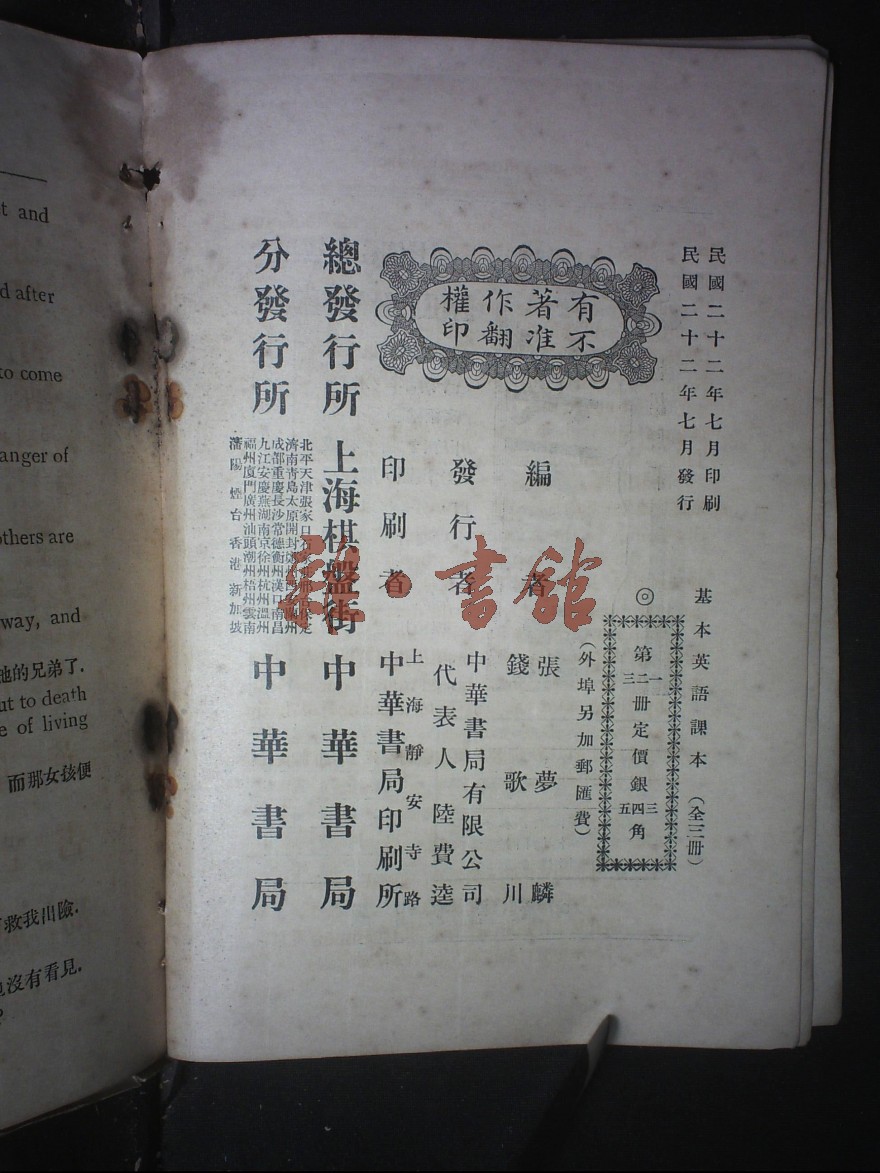 民國二十二年七月印刷
民國二十二年七月發行
基本英語課本(全三冊)
◎
第一二三冊定價銀三四五角
(外埠另加郵匯費)
有著作權
不准翻印
編者 張夢麟
錢歌川
發行者 中華書局有限公司
代表人 陸費逵
印刷者 上海靜安寺路
中華書局印刷所
總發行所 上海棋盤街 中華書局
分發行所
北平天津張家口
濟南青島太原開封
成都重慶長沙常德衡州漢口南昌
九江安慶蕪湖南京徐州杭州溫州
福州廈門廣州汕頭潮州梧州雲南
瀋陽煙台香港新加坡
中華書局
雜·書館
t and
d after
to come
anger of
others are
way, and
他的兄弟了.
ut to death
e of living
而那女孩便
救我出險.
也沒有看見.
?